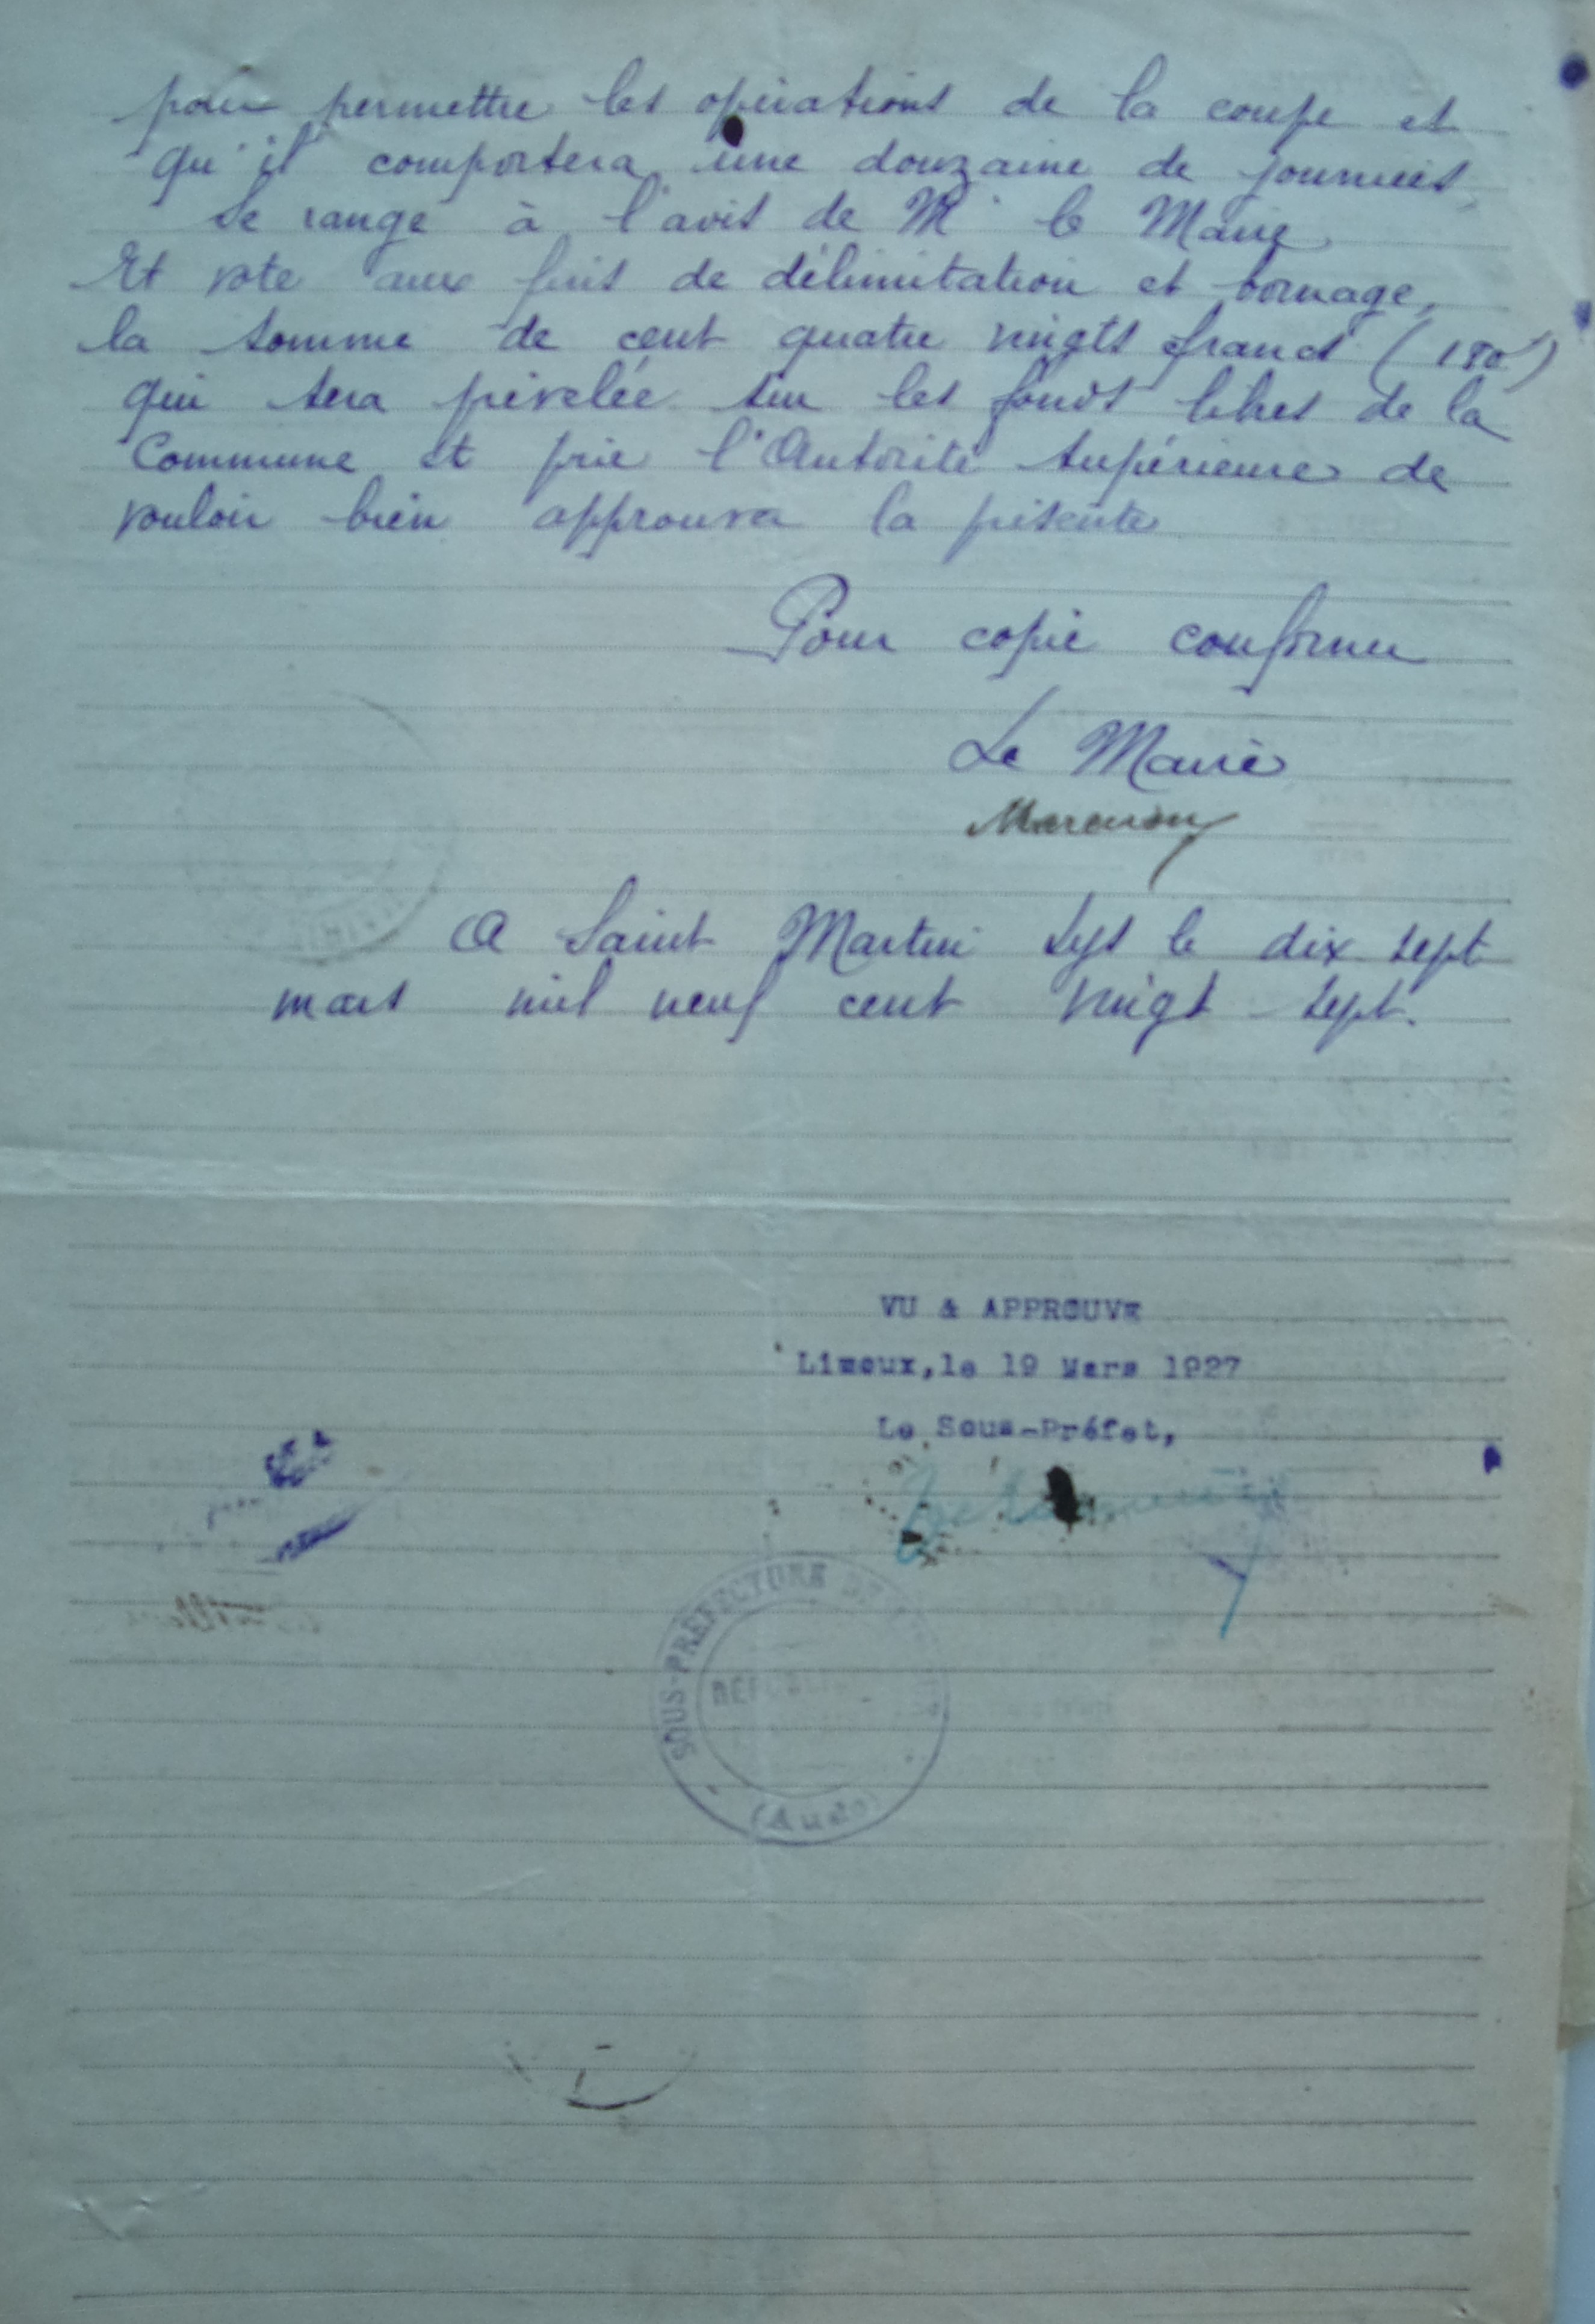 pour permettre les opérations de la coupe et
qu'il comportera une douzaine de journées,
se range à l'avis de Mr le Maire
Et vote aux fins de délimitation et bornage,
la somme de cent quatre vingts francs (180f)
qui sera prevelée sur les fonds libres de la
Commune et prie l'Autorité Supérieure de
vouloir bien approuver la présente
Pour copie conforme
Le Maire
A Saint Martin Lys le dix sept
mars mil neuf cent vingt-sept.
VU & APPROUVE
Limoux,le 19 Mars 1927
Le Sous-Préfet,
SOUS-PRÉFECTURE DE
RÉPUBLI
(Aude)